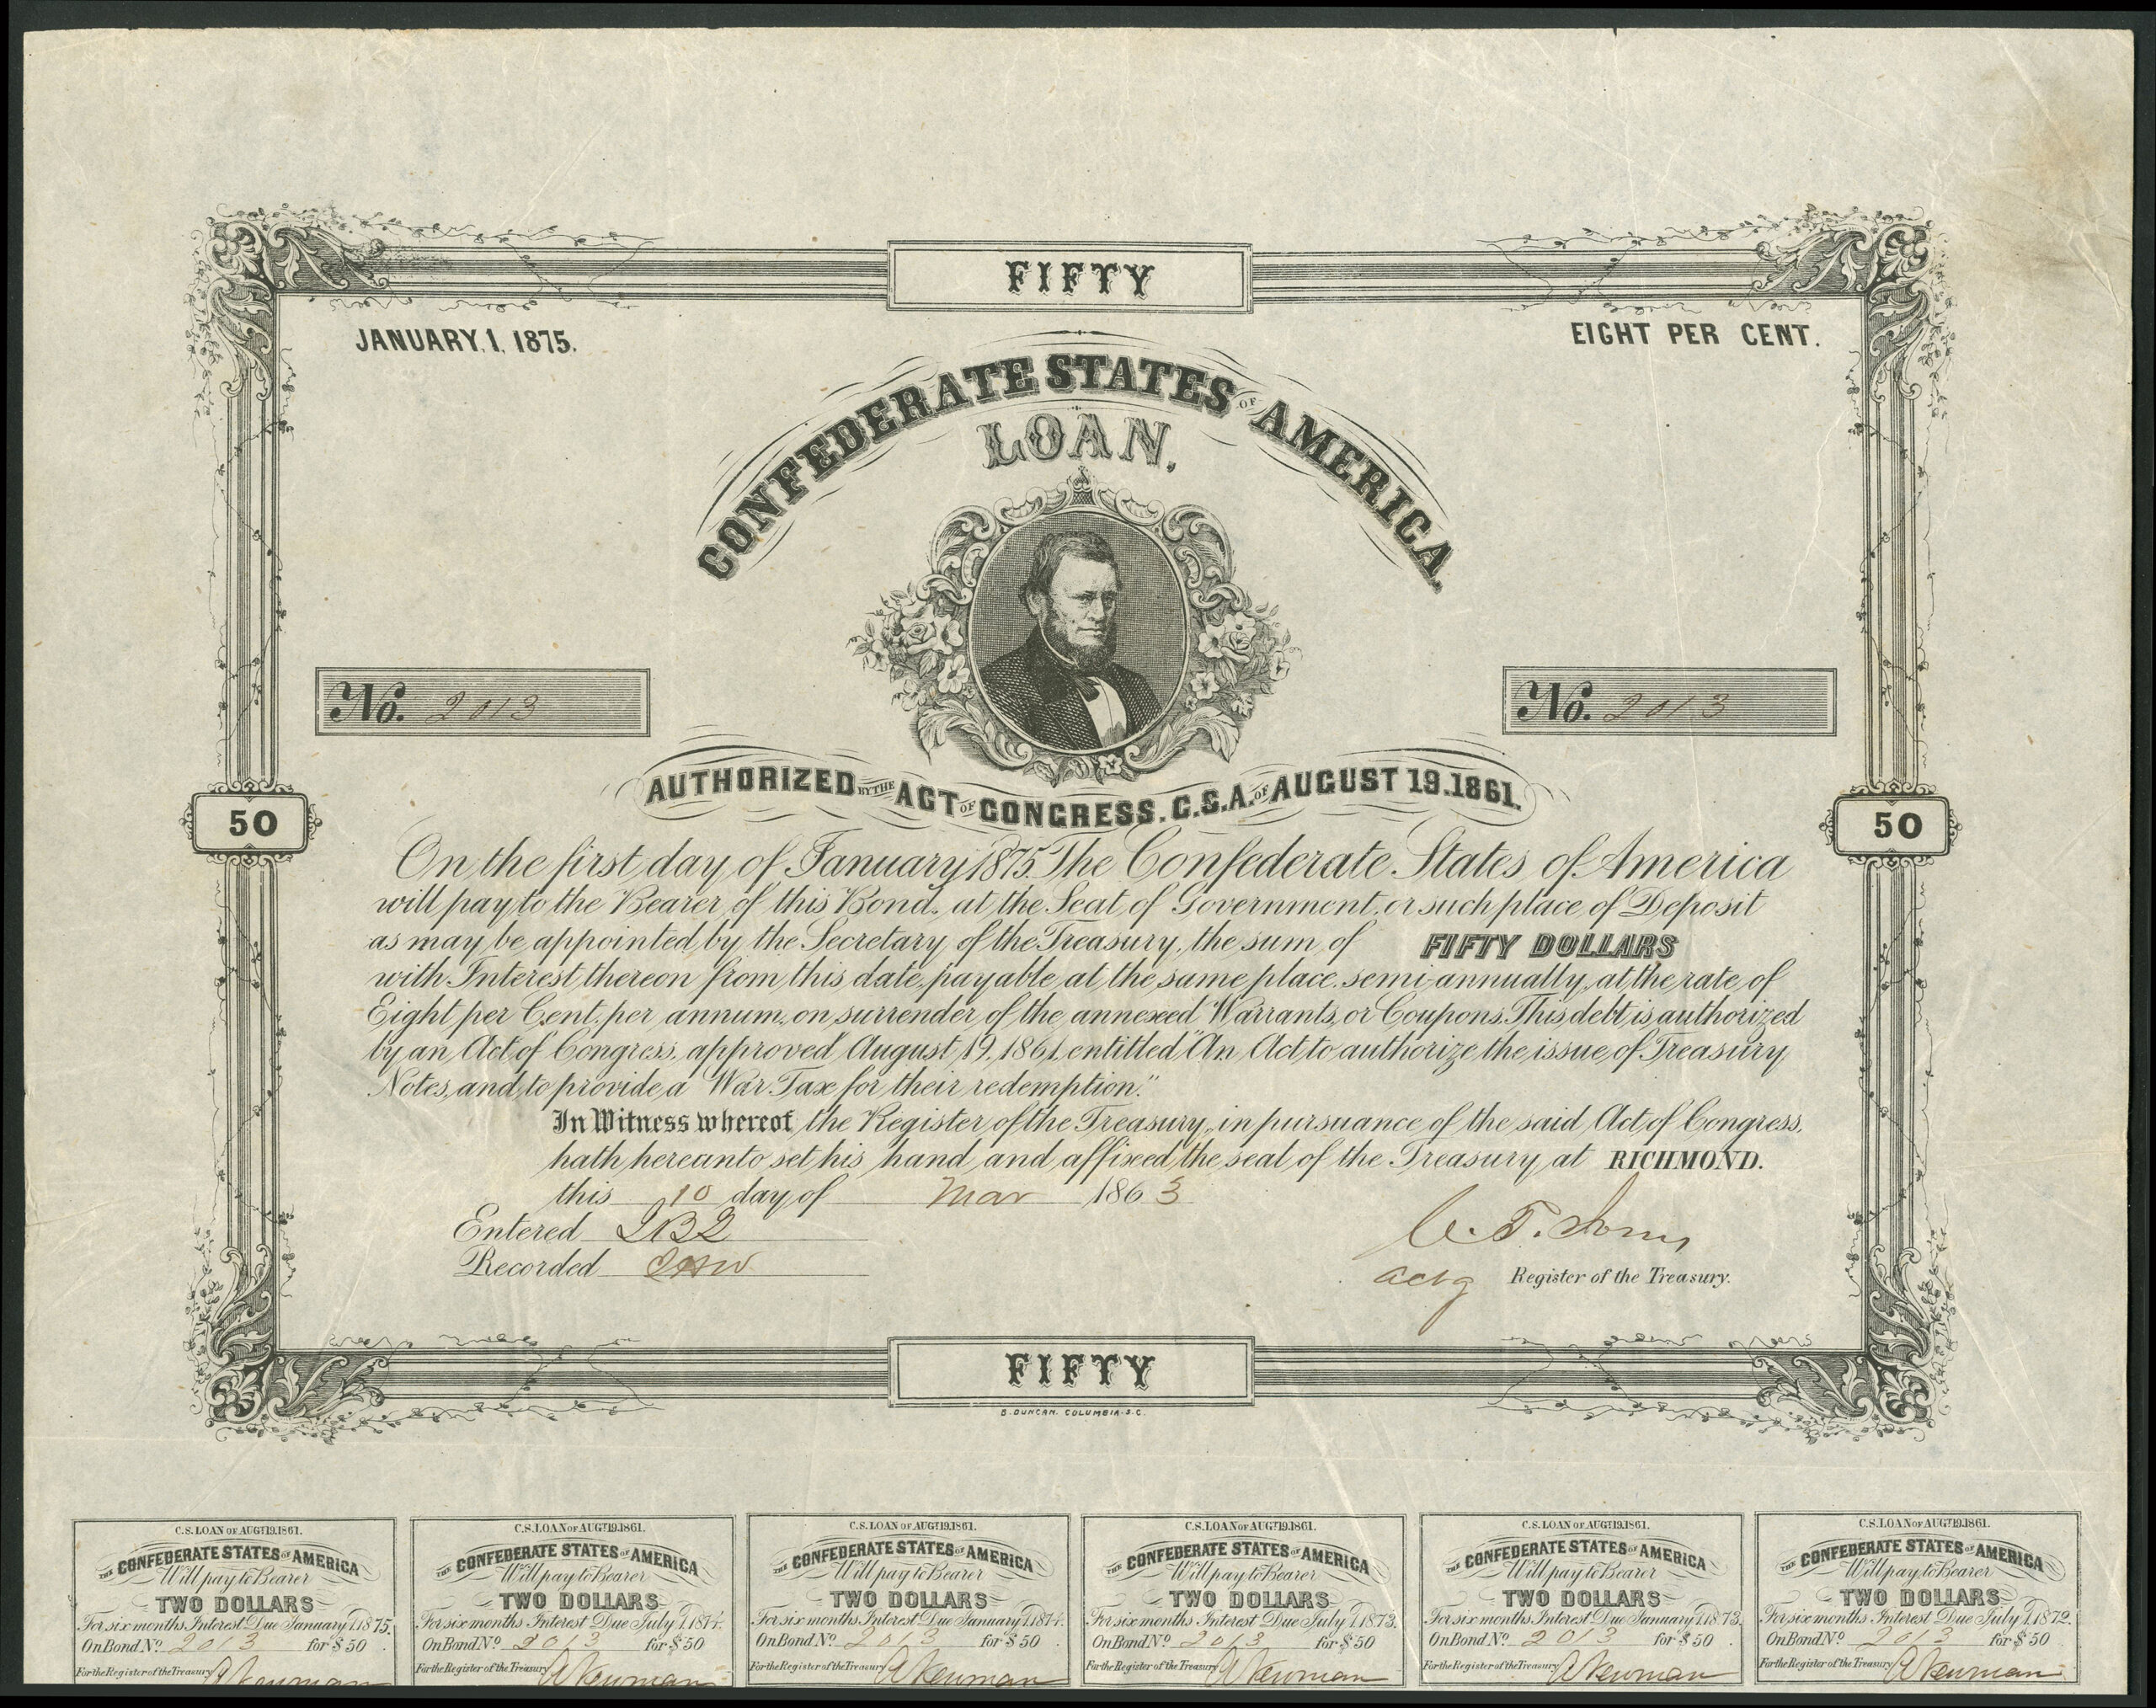 FIFTY
JANUARY, 1, 1875.
EIGHT PER CENT.
CONFEDERATE STATES OF AMERICA.
LOAN.
No. 2013
No. 2013
AUTHORIZED BY THE ACT OF CONGRESS. C.S.A. OF AUGUST 19.1861.
50
50
On the first day of January 1875 The Confederate States of America
will pay to the Bearer of this Bond, at the Seat of Government, or such place of Deposit
as may be appointed by the Secretary of the Treasury, the sum of FIFTY DOLLARS
with Interest thereon from this date, payable at the same place semi-annually, at the rate of
Eight per Cent. per annum, on surrender of the annexed Warrants, or Coupons. This debt is authorized
by an Act of Congress, approved August 19, 1861, entitled "An Act to authorize the issue of Treasury
Notes, and to provide a War Tax for their redemption."
In Witness whereof, the Register of the Treasury, in pursuance of the said Act of Congress,
hath hereunto set his hand and affixed the seal of the Treasury at RICHMOND.
this 10 day of Mar 1863
Entered
Recorded
C. T. Jones
actg Register of the Treasury.
FIFTY
B. DUNCAN. COLUMBIA. S.C.
C.S. LOAN OF AUGT 19.1861.
THE CONFEDERATE STATES OF AMERICA
Will pay to Bearer
TWO DOLLARS
For six months Interest Due January 1.1875.
On Bond No. 2013 for $50
For the Register of the Treasury A Newman
C.S. LOAN OF AUGT 19.1861.
THE CONFEDERATE STATES OF AMERICA
Will pay to Bearer
TWO DOLLARS
For six months Interest Due July 1.1874.
On Bond No. 2013 for $50
For the Register of the Treasury A Newman
C.S. LOAN OF AUGT 19.1861.
THE CONFEDERATE STATES OF AMERICA
Will pay to Bearer
TWO DOLLARS
For six months Interest Due January 1.1874.
On Bond No. 2013 for $50
For the Register of the Treasury A Newman
C.S. LOAN OF AUGT 19.1861.
THE CONFEDERATE STATES OF AMERICA
Will pay to Bearer
TWO DOLLARS
For six months Interest Due July 1.1873.
On Bond No. 2013 for $50
For the Register of the Treasury A Newman
C.S. LOAN OF AUGT 19.1861.
THE CONFEDERATE STATES OF AMERICA
Will pay to Bearer
TWO DOLLARS
For six months Interest Due January 1.1873.
On Bond No. 2013 for $50
For the Register of the Treasury A Newman
C.S. LOAN OF AUGT 19.1861.
THE CONFEDERATE STATES OF AMERICA
Will pay to Bearer
TWO DOLLARS
For six months Interest Due July 1.1872.
On Bond No. 2013 for $50
For the Register of the Treasury A Newman